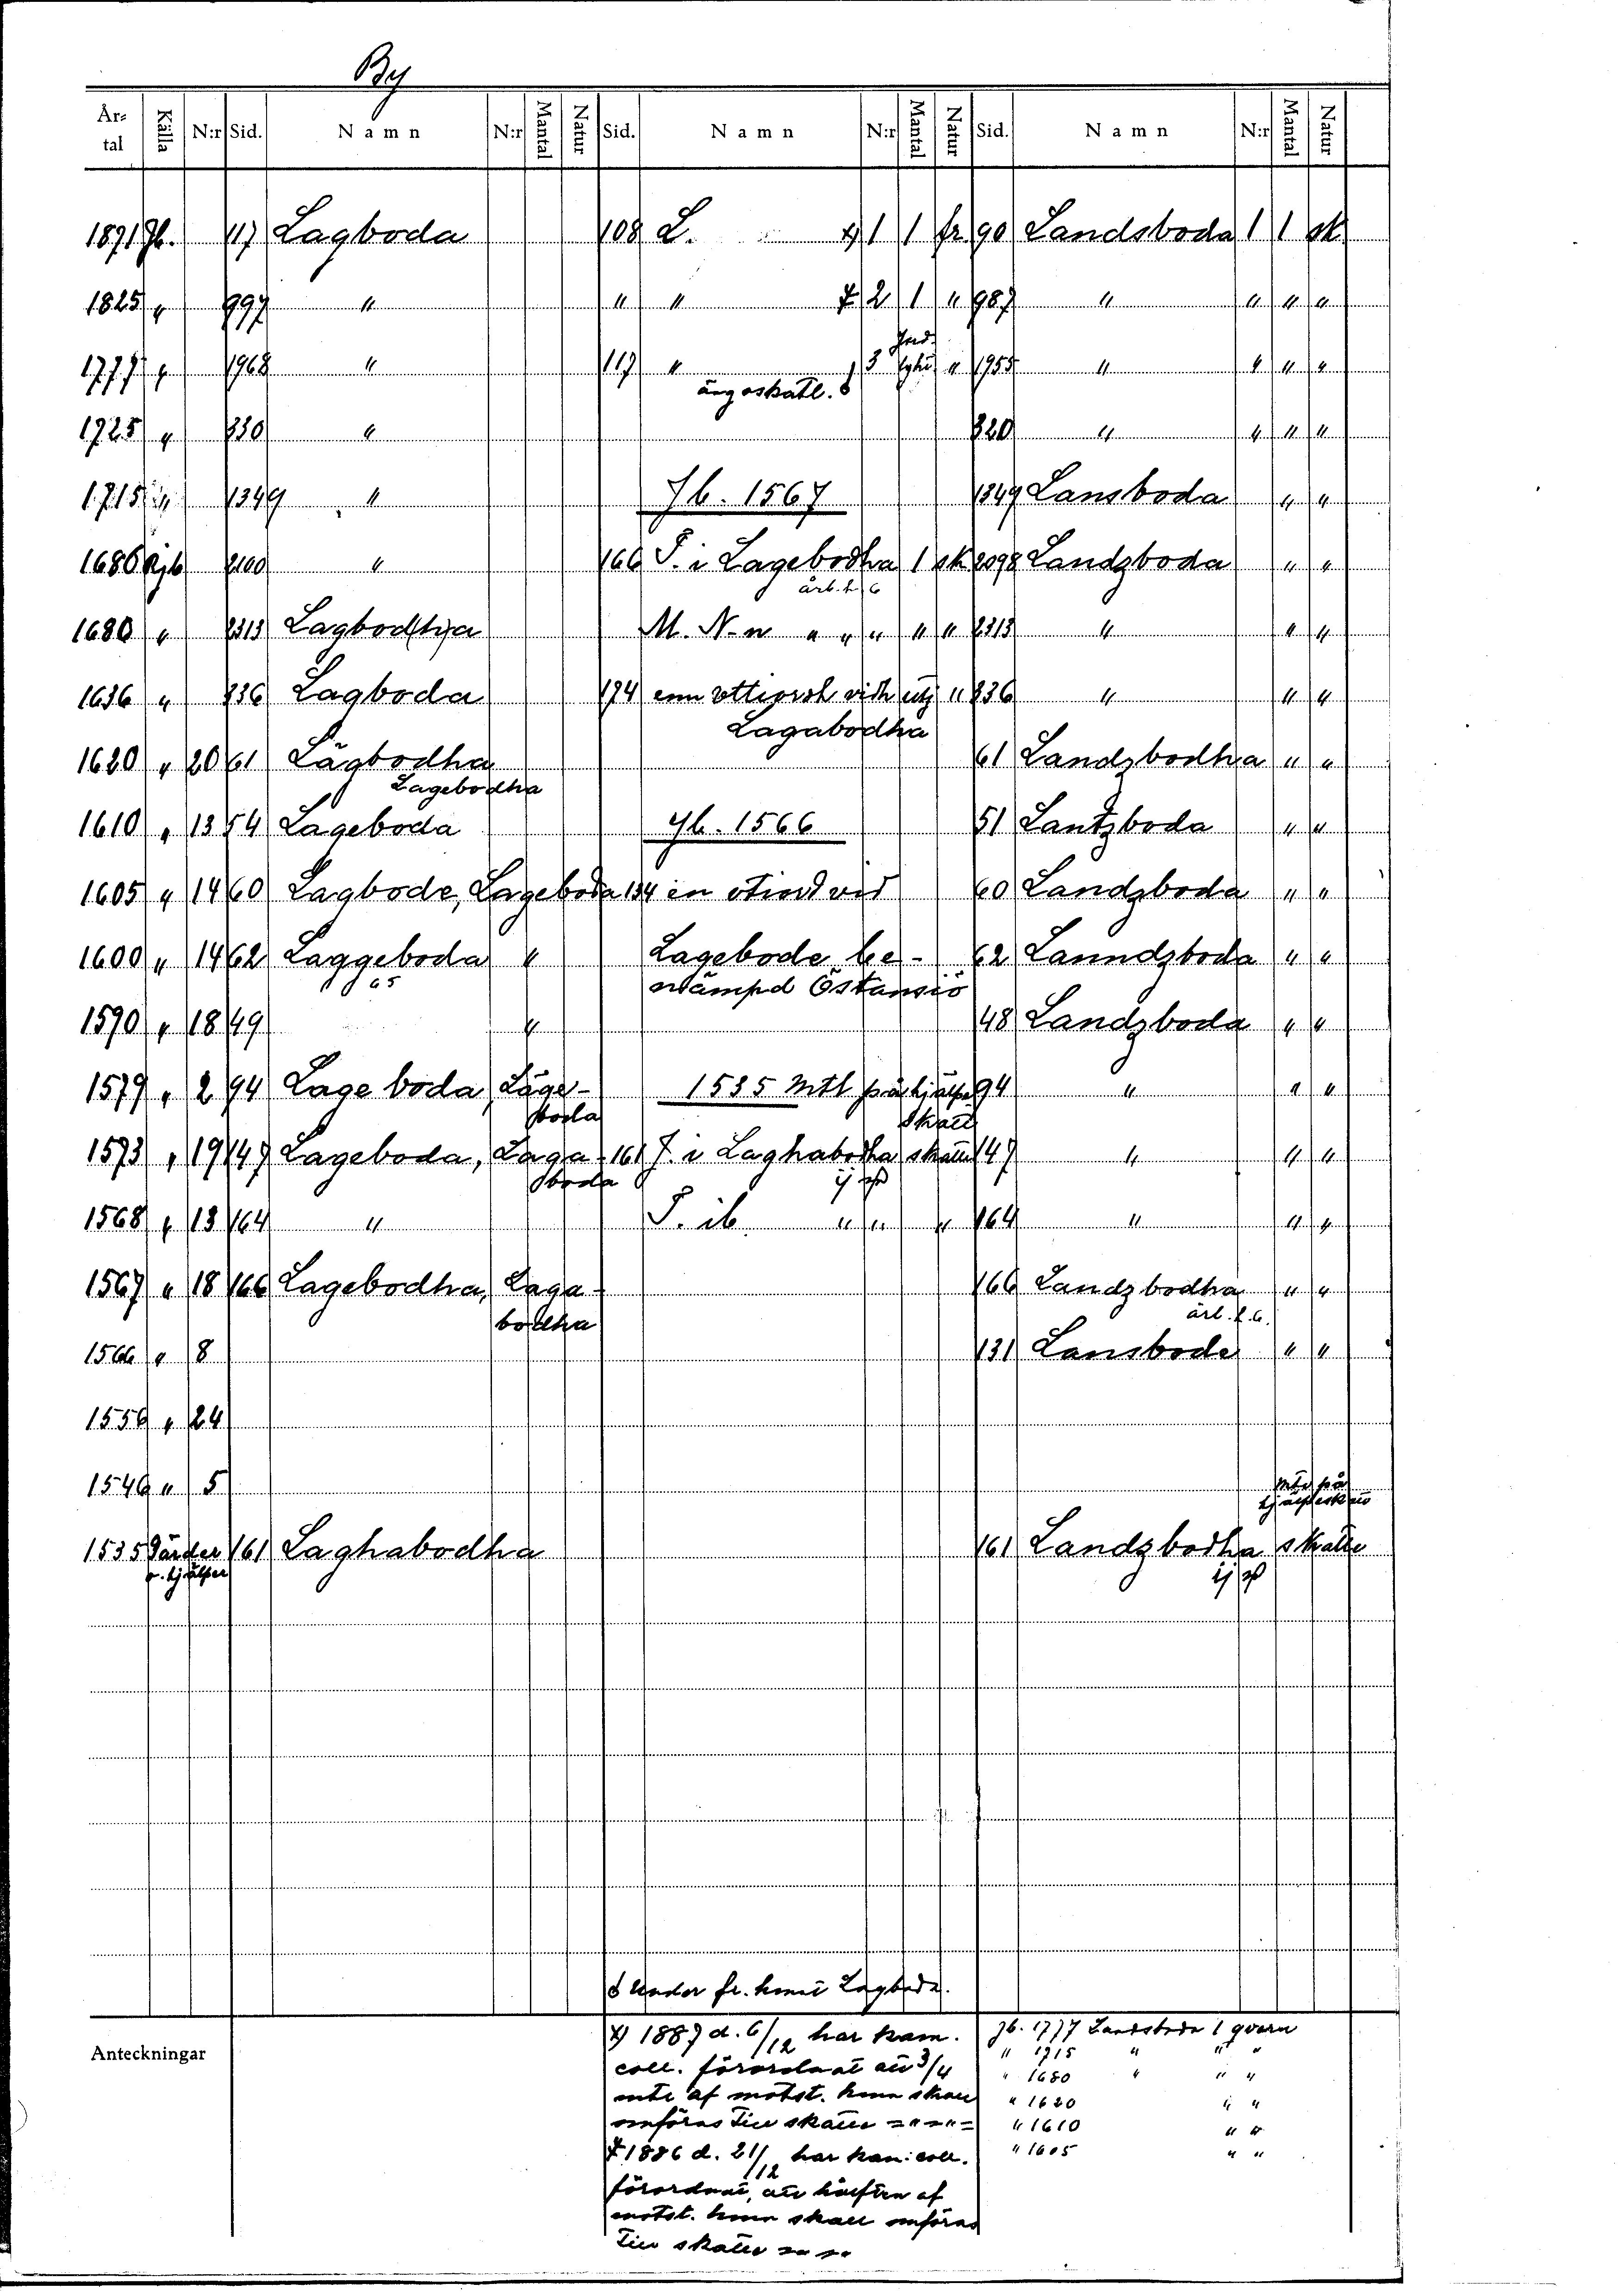 By
År-tal Källa N:r Sid. Namn N:r Mantal Natur Sid. Namn N:r Mantal Natur Sid. Namn N:r Mantal Natur
1871 Jb. 117 Lagboda 108 L. x) 1 1 fr 90 Landsboda 1 1 sk
1825 " 997 " " " ⨧ 2 1 " 987 " " " "
1777 " 1968 " 117 " 3 " 1955 " " " "
ängeskatl. δ
1725 " 830 " 820 " " " "
1715 " 1349 " Jb. 1567 1349 Lansboda " "
1686 Rjb 2100 " 166 T. i Lagebodha 1 sk 2098 Landzboda " "
årl. f. 6
1680 " 2313 Lagbod(h)a M. N-n " " " " " 2313 " " "
1636 " 836 Lagboda 174 enn ottiorsh vidh utj " 836 " " "
Lagabodha
1620 " 20 61 Lagbodha 61 Landzbodha " "
Lagebodha
1610 " 13 54 Lageboda Jb. 1566 51 Lantzboda " "
1605 " 14 60 Lagbode, Lageboda 134 en otiord vid 60 Landzboda " "
1600 " 14 62 Laggeboda " Lagebode be- 62 Lanndzboda " "
65 nämpd Östansiö
1590 " 18 49 " 48 Landzboda " "
1579 " 2 94 Lage boda, Läge- 1535 Mtl på hjälpe 94 " " "
boda skatt
1573 " 19 147 Lageboda, Laga- 161 J. i Laghabodha skatte 147 " " "
boda ij
1568 " 13 164 " T. ib " " " 164 " " "
1567 " 18 166 Lagebodha, Laga- 166 Landzbodha " "
bodha årl. f. 6.
1566 " 8 131 Lansbode " "
1556 " 24
1546 " 5 Mtl på
hjälpeskatt
1535 Gärder 161 Laghabodha 161 Landzbodha skatte
o. hjälper ij
δ Under fr. hemt Lagboda.
Anteckningar
x) 1887 d. 6/12 har kam.
coll. förordnat att 3/4
mtl af motst. hmn skall
omföras till skatte = " = " =
⨧ 1886 d. 21/12 har kam: coll.
förordnat, att hälften af
motst. hmn skall omföras
till skatte = " = "
Jb. 1777 Landsboda 1 qvarn
" 1715 " " "
" 1680 " " "
" 1620 " "
" 1610 " "
" 1605 " "